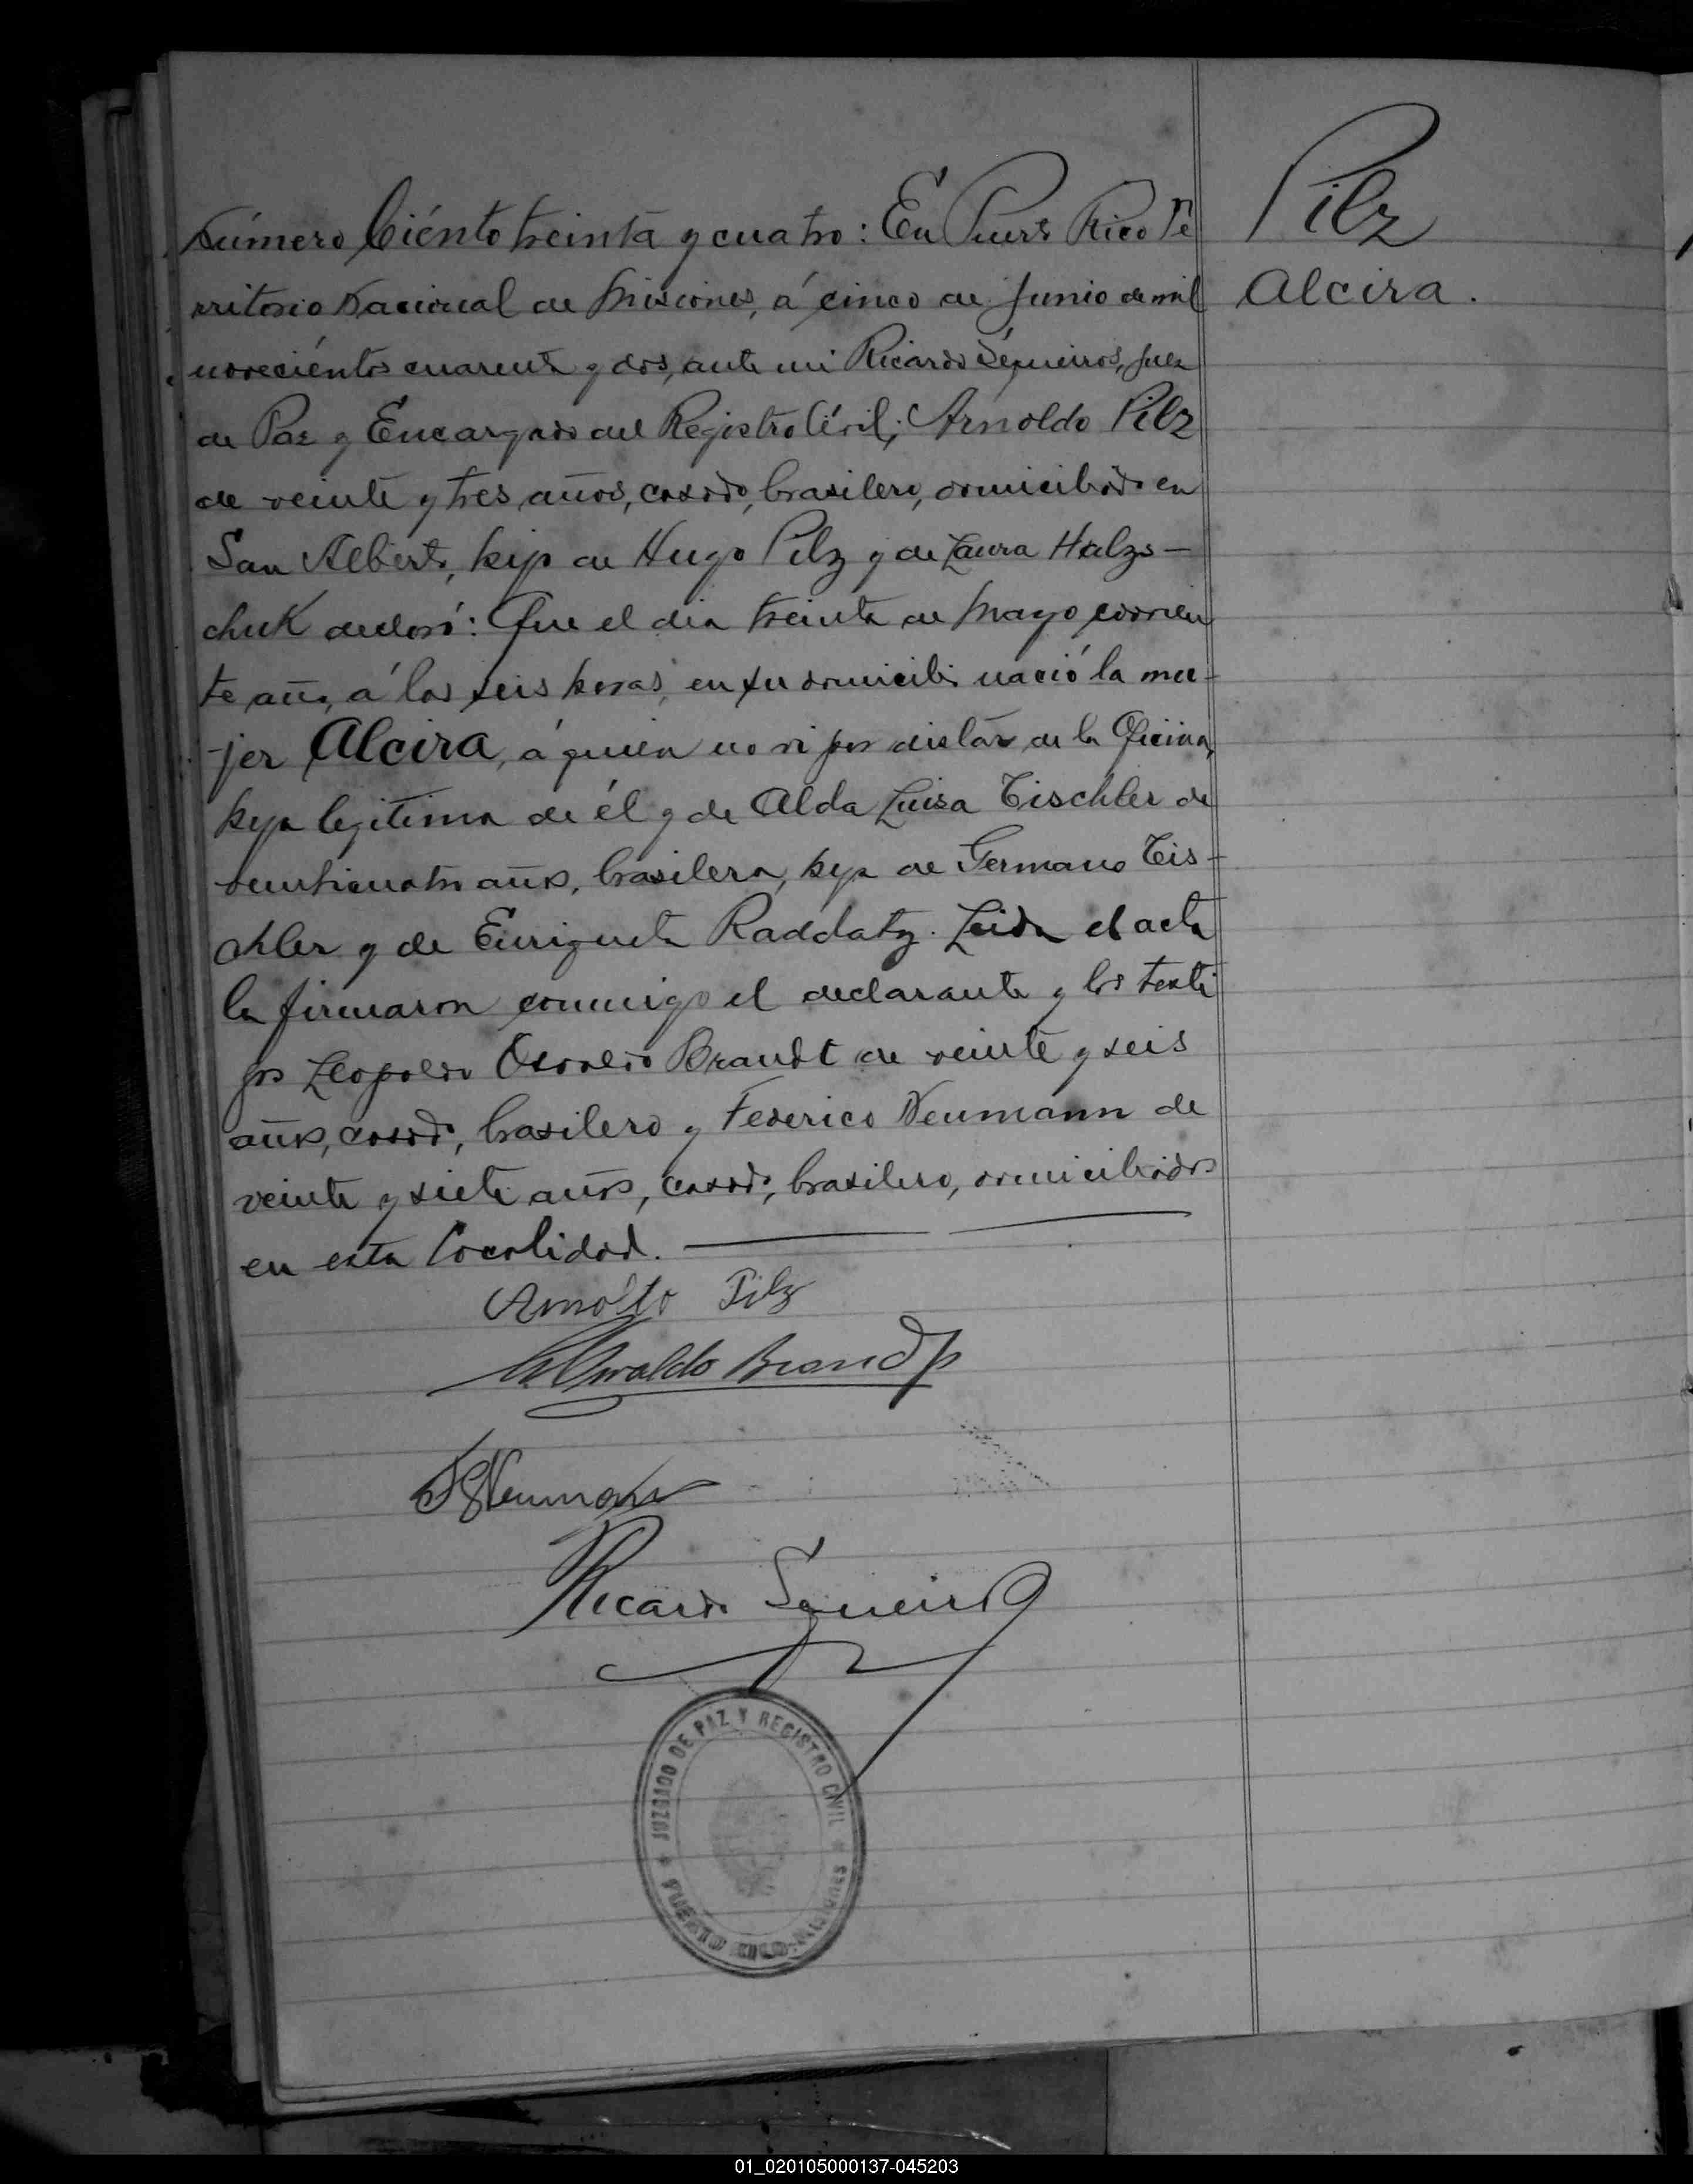 Número Ciénto treinta y cuatro: En Puerto Rico Te
rritorio Nacional de Misiones, á cinco de Junio de mil
noveciéntos cuarenta y dos, ante mi Ricardo Sequeiros, Juez
de Paz y Encargado del Registro Civil; Arnoldo Pilz
de veinte y tres años, casado, brasilero, domiciliado en
San Alberto, hijo de Hugo Pilz y de Laura Halzs-
chuk declaró: Que el dia treinta de Mayo corrien
te año, á las seis horas, en su domicilio nació la mu-
-jer Alcira, á quien no vi por distar de la Oficina,
hija legitima de él y de Alda Luisa Tischler de
veinticuatro años, brasilera, hija de Germano Tis-
chler y de Enriqueta Raddatz. Leida el acta
la firmaron conmigo el declarante y los testi
gos Leopoldo Osvaldo Brandt de veinte y seis
años, casado, brasilero y Federico Neumann de
veinte y siete años, casado, brasilero, domiciliados
en esta Localidad.
Pilz
Alcira.
Arnoldo Pilz
Oswaldo Brandt
Neumann
Ricardo Sequeiros
JUZGADO DE PAZ Y REGISTRO CIVIL
PUERTO RICO-Misiones
01_020105000137-045203